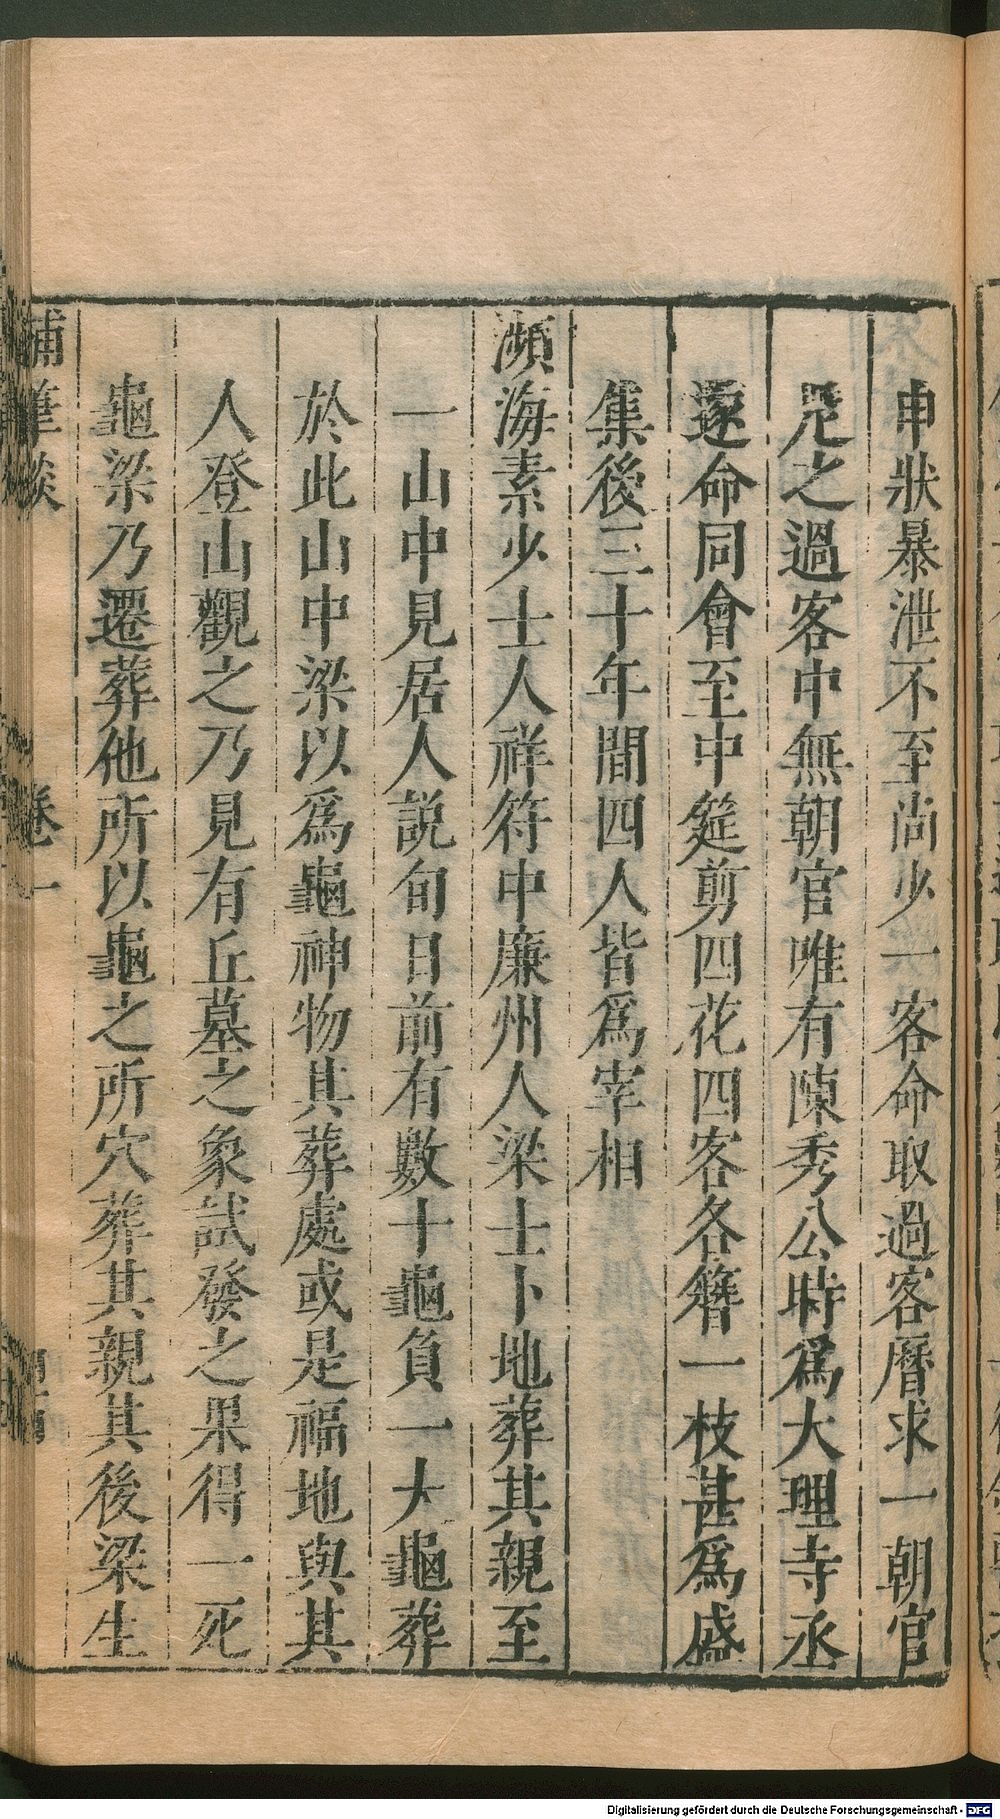 申狀暴泄不至尚少一客命取過客曆求一朝官
足之過客中無朝官唯有陳秀公時爲大理寺丞
遂命同會至中筵剪四花四客各簪一枝甚爲盛
集後三十年間四人皆爲宰相
瀕海素少士人祥符中廉州人梁士卜地葬其親至
一山中見居人説旬日前有數十龜負一大龜葬
於此山中梁以爲龜神物其葬處或是福地與其
人登山觀之乃見有丘墓之象試發之果得一死
龜梁乃遷葬他所以龜之所穴葬其親其後梁生
補筆談 卷一
Digitalisierung gefördert durch die Deutsche Forschungsgemeinschaft - DFG